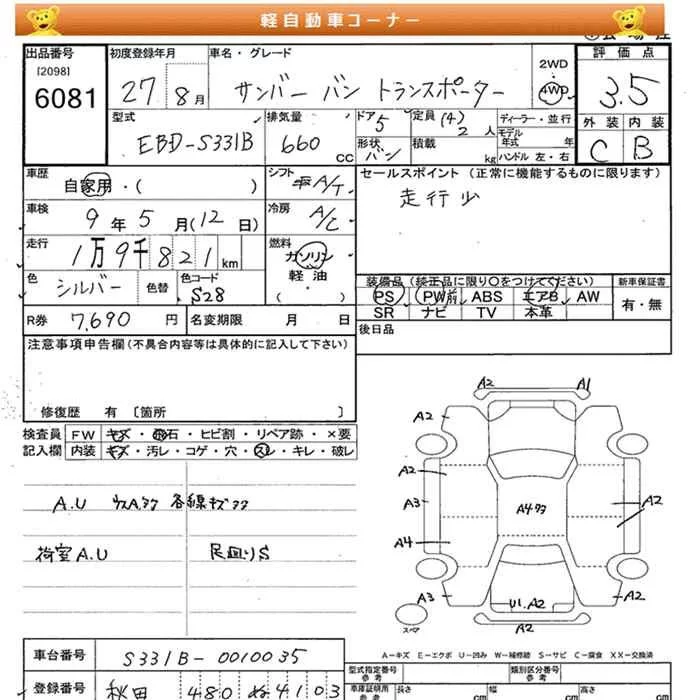 軽自動車コーナー
出品番号
[2098]
6081
初度登録年月
27 8月
車名・グレード
サンバー バン トランスポーター
2WD
4WD
評価点
3.5
外装 内装
C B
型式
EBD-S331B
排気量
660 CC
ドア
5
形状
バン
定員 (4)
2 人
積載
kg
ディーラー・並行
モデル年式 年
ハンドル 左・右
車歴
自家用・( )
シフト
A/T
車検
9年 5月 (12日)
冷房
A/C
走行
1万9千821km
燃料
ガソリン
軽油
( ・ )
色
シルバー
色替
色コード
S28
R券 7,690 円
名変期限 月 日
セールスポイント (正常に機能するものに限ります)
走行少
装備品 (純正品に限り○をつけてください)
PS PW前 ABS エアB AW
SR ナビ TV 本革
新車保証書
有・無
後日品
注意事項申告欄(不具合内容等は具体的に記入して下さい)
修復歴 有 [箇所 ]
検査員 FW キズ・飛石・ヒビ割・リペア跡・×要
記入欄 内装 キズ・汚レ・コゲ・穴・スレ・キレ・破レ
A.U
各線キズ
荷室A.U
足廻りS
A2 A1
A2
A2
A3
A2
A473
A4
A3
A2
U1.A2
スペア
A-キズ E-エクボ U-凹み W-補修跡 S-サビ C-腐食 XX-交換済
車台番号
S331B-0010035
登録番号
秋田 480 ぬ 4103
型式指定番号
参考
類別区分番号
参考
車庫証明用
参考
長さ cm
幅 cm
高さ cm